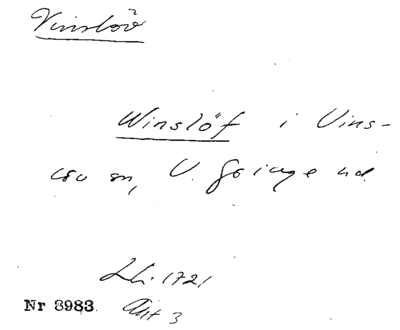 Vinslöv
Winslöf i Vins-
löv sn, V. Göinge hd.
1721
Nr 8983 Akt 3